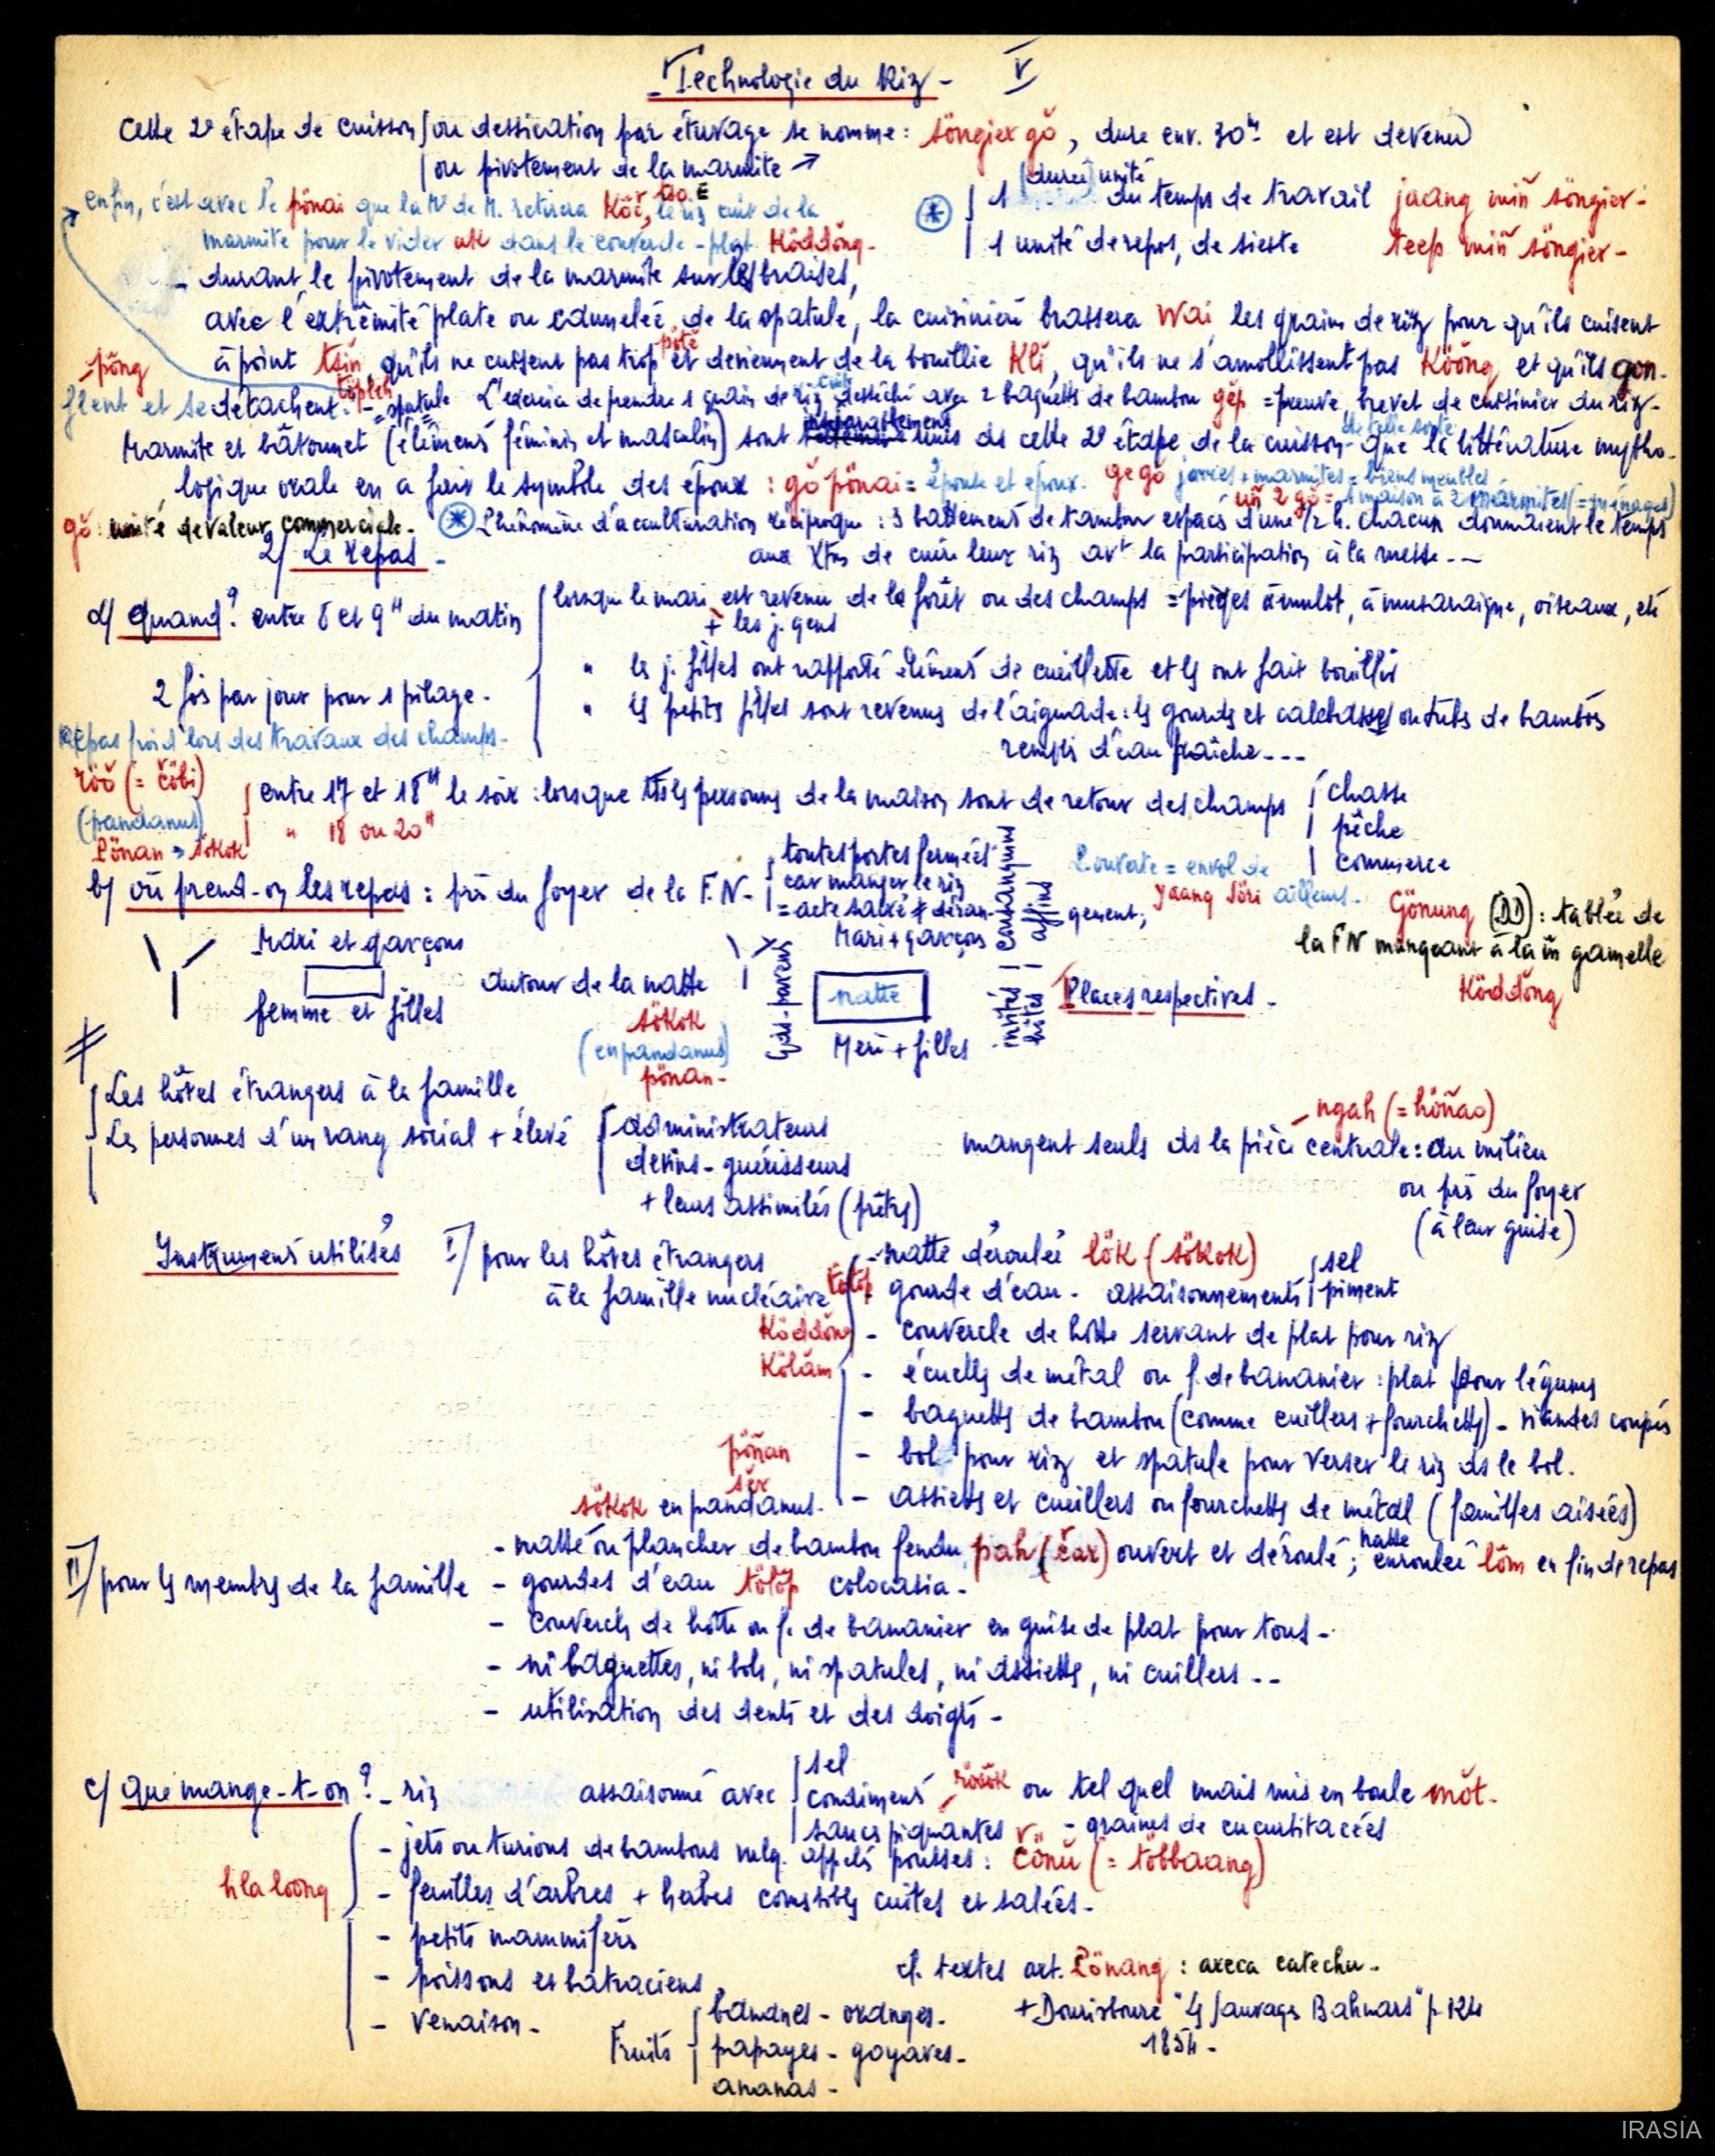 - Technologie du Riz - V
Cette 2e étape de cuisson ou dessication par étuvage se nomme : söngiex gŏ, dure env. 30m et est devenu
ou pivotement de la marmite →
(durée) unité
1 du temps de travail jaang miñ söngiex -
1 unité de repos, de sieste teep miñ söngiex -
enfin, c'est avec le pönai que la Me de M. retirera Köĕ, le riz cuit de la
marmite pour le vider uk dans le couvercle-plat Köddŏng -
- durant le pivotement de la marmite sur les braises,
avec l'extrêmité plate ou cannelée de la spatule, la cuisinière brassera wai les grains de riz pour qu'ils cuisent
à point tsĭn, qu'ils ne cuisent pas trop et deviennent de la bouillie Klĭ, qu'ils ne s'amollissent pas Köŏng et qu'ils gon-
- pŏng
flent et se détachent. spatule L'exercice de prendre 1 grain de riz cuit desséché avec 2 baguetts de bambou gĕp = preuve, brevet de cuisinier du riz -
Marmite et bâtonnet (éléments féminin et masculin) sont unis ds cette 2e étape de la cuisson de telle sorte que la littérature mytho-
logique orale en a fait le symbole des époux : gŏ pŏnai = épouse et époux. ge gŏ jarres + marmites = biens meubles
uñ 2 gŏ = 1 maison à 2 marmites (= ménages)
gŏ : unité de valeur commerciale. * Phénomène d'acculturation réciproque : 3 battements de tambour espacés d'une 1/2 h. chacun donnaient le temps
aux Xtns de cuire leur riz avt la participation à la messe --
2) Le repas -
a) Quand? entre 8 et 9H du matin
lorsque le mari est revenu de la forêt ou des champs = pièges à mulot, à musaraigne, oiseaux, etc
+ les j. gens
" les j. filles ont rapporté éléments de cueillette et ls ont fait bouillir
2 fois par jour pour 1 pilage -
" ls petits filles sont revenus de l'aiguade : ls gourds et calebasses ou tubs de bambous
remplis d'eau fraîche ---
Repas froid lors des travaux des champs -
röŏ (= čŏbi)
(pandanus)
Pönan → sökok
entre 17 et 18H le soir : lorsque tts ls personns de la maison sont de retour des champs
" 18 ou 20H
chasse
pêche
commerce
b) où prend-on les repas : près du foyer de la F.N -
toutes portes fermées
car manger le riz
= acte sacré ≠ déran-
gement,
Pouverte = envol de
Yaang Söri ailleurs -
Gönung (DD) : tablée de
la FN mangeant à la m̂ gamelle
Köddŏng
Mari et garçons
femme et filles
autour de la natte
sökok
(en pandanus)
pönan -
Mari + garçons
natte
Mère + filles
invités | consanguins
hôtes | affins
Places respectives -
Les hôtes étrangers à la famille
Les personnes d'un rang social + élevé
administrateurs
devins - guérisseurs
+ leurs assimilés (prêtrs)
- ngah (= hŏñao)
mangent seuls ds la pièce centrale : au milieu
ou près du foyer
(à leur guise)
Instruments utilisés
I) pour les hôtes étrangers
à la famille nucléaire
- natte déroulée lŏk (sökok)
tŏlŏp - gourde d'eau - assaisonnements
sel
piment
Köddŏng - couvercle de hotte servant de plat pour riz
Kölăm - écuells de métal ou f. de bananier : plat pour légums
- baguetts de bambou (comme cuillers + fourchetts) - viandes coupés
pöñan
- bol pour riz et spatule pour verser le riz ds le bol.
- assietts et cueillers ou fourchetts de métal (familles aisées)
sökok en pandanus -
II) pour ls membrs de la famille
- natte ou plancher de bambou fendu pah (čar) ouvert et déroulé ; natte enroulée lŏm en fin de repas
- gourdes d'eau tŏlŏp colocasia -
- couvercls de hotte ou f. de bananier en guise de plat pour tous -
- ni baguettes, ni bols, ni spatules, ni assietts, ni cuillers --
- utilisation des dents et des doigts -
c) Que mange-t-on?
- riz assaisonné avec
sel
condiments
sauces piquantes
ou tel quel mais mis en boule mŏt -
- graines de cucurbitacées
- jets ou turions de bambous vulg. appelés pousses : čŏnŭ (= tŏbbaang)
hla loong
- feuilles d'arbres + herbes comstibls cuites et salées -
- petits mammifèrs
- poissons et batraciens
- venaison -
Fruits
bananes - oranges -
papayes - goyaves -
ananas -
cf. textes art. Pönang : areca catechu -
+ Dourisboure "Ls Sauvages Bahnars" p. 124
1854 -
IRASIA